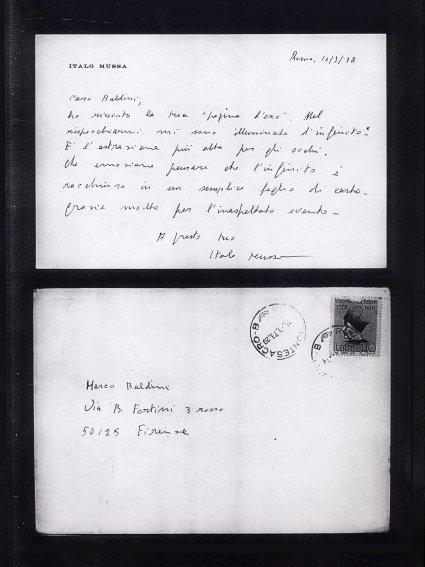 ITALO MUSSA
Roma, 12/3/78
Caro Baldini,
ho ricevuto la tua "pagina d'oro". Nel
rispecchiarmi mi sono illuminato d'infinito:
E' l'astrazione più alta per gli occhi.
Che emozione pensare che l'infinito è
racchiuso in un semplice foglio di carta.
Grazie molto per l'inaspettato evento.
A presto tuo
Italo Mussa
Marco Baldini
Via B. Fortini 3 rosso
50125 Firenze